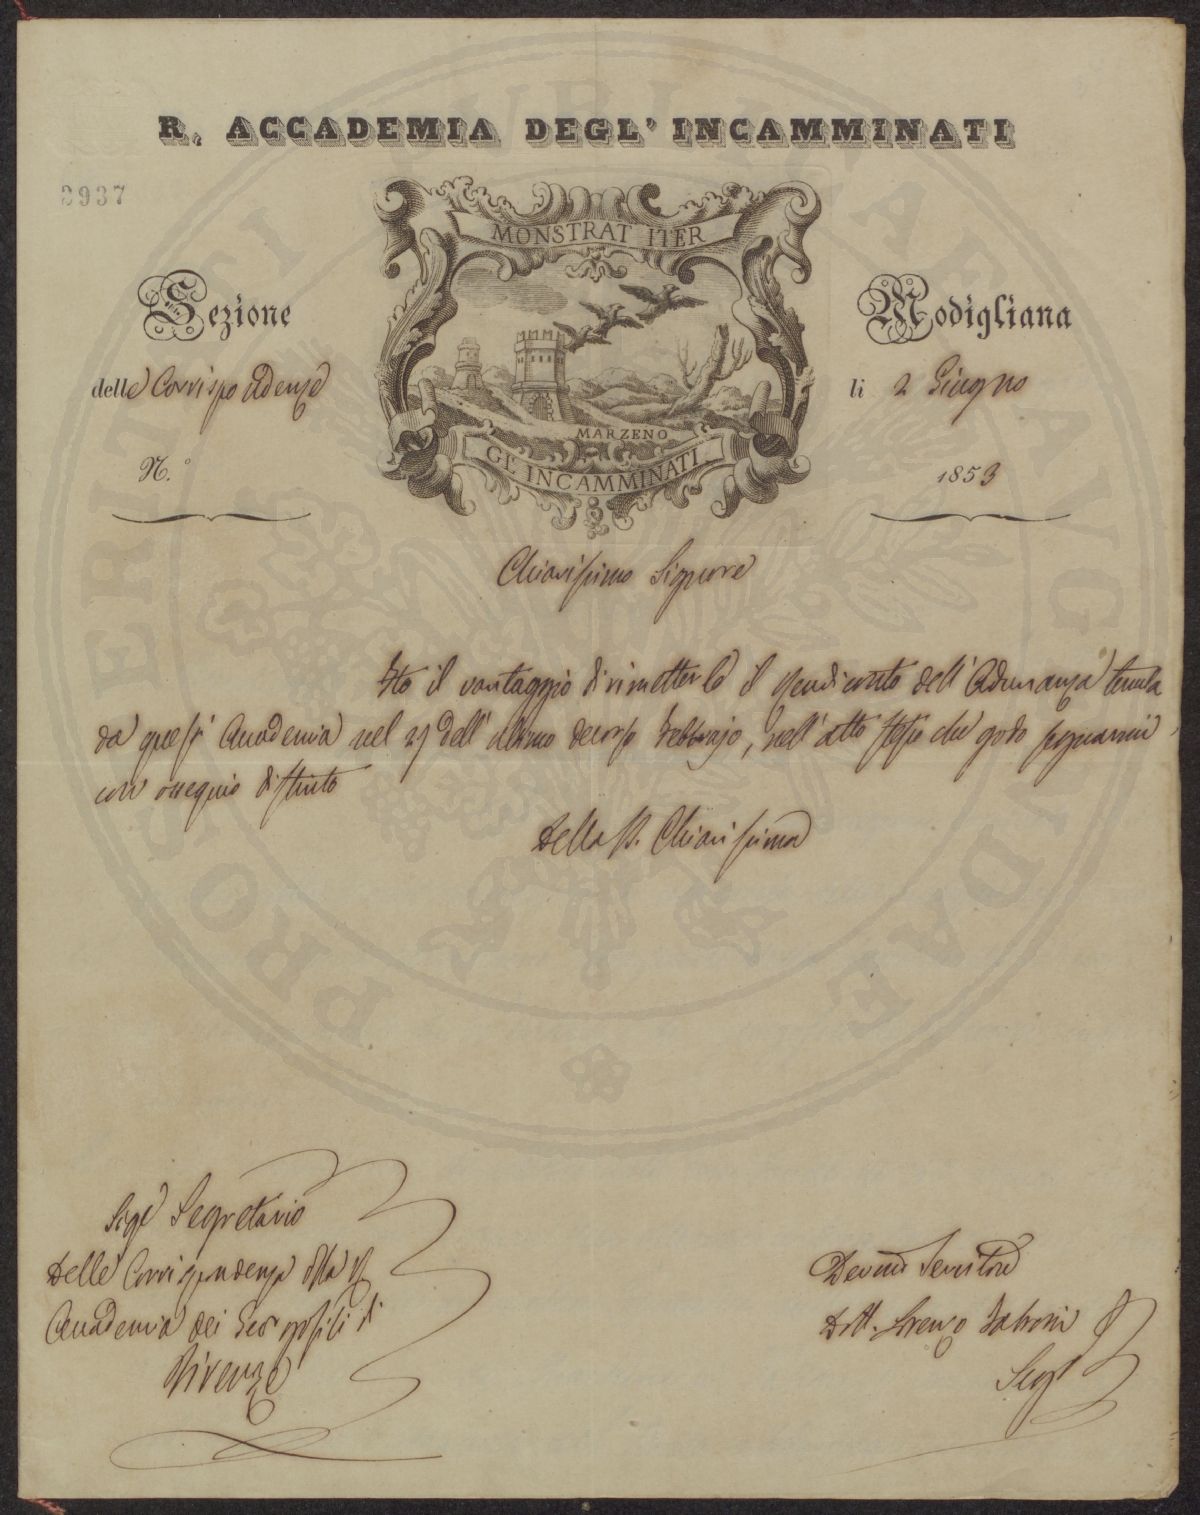 R. ACCADEMIA DEGL' INCAMMINATI
2937
MONSTRAT ITER
MARZENO
GL' INCAMMINATI
Sezione
delle Corrispondenze
N.°
Modigliana
li 2 Giugno
1853
Chiarissimo Signore
Ho il vantaggio di rimetterLe il rendiconto dell'Adunanza tenuta
da quest' Accademia nel 27 dell' ultimo decorso Febbrajo, nell' atto stesso che godo segnarmi
con ossequio distinto
Della S. Chiarissima
Sige Segretario
Delle Corrispondenze della R.
Accademia dei Georgofili di
Firenze
Devmo Servitore
Dott. Lorenzo
Segr
PROSPERITATI PUBLICAE AUGENDAE